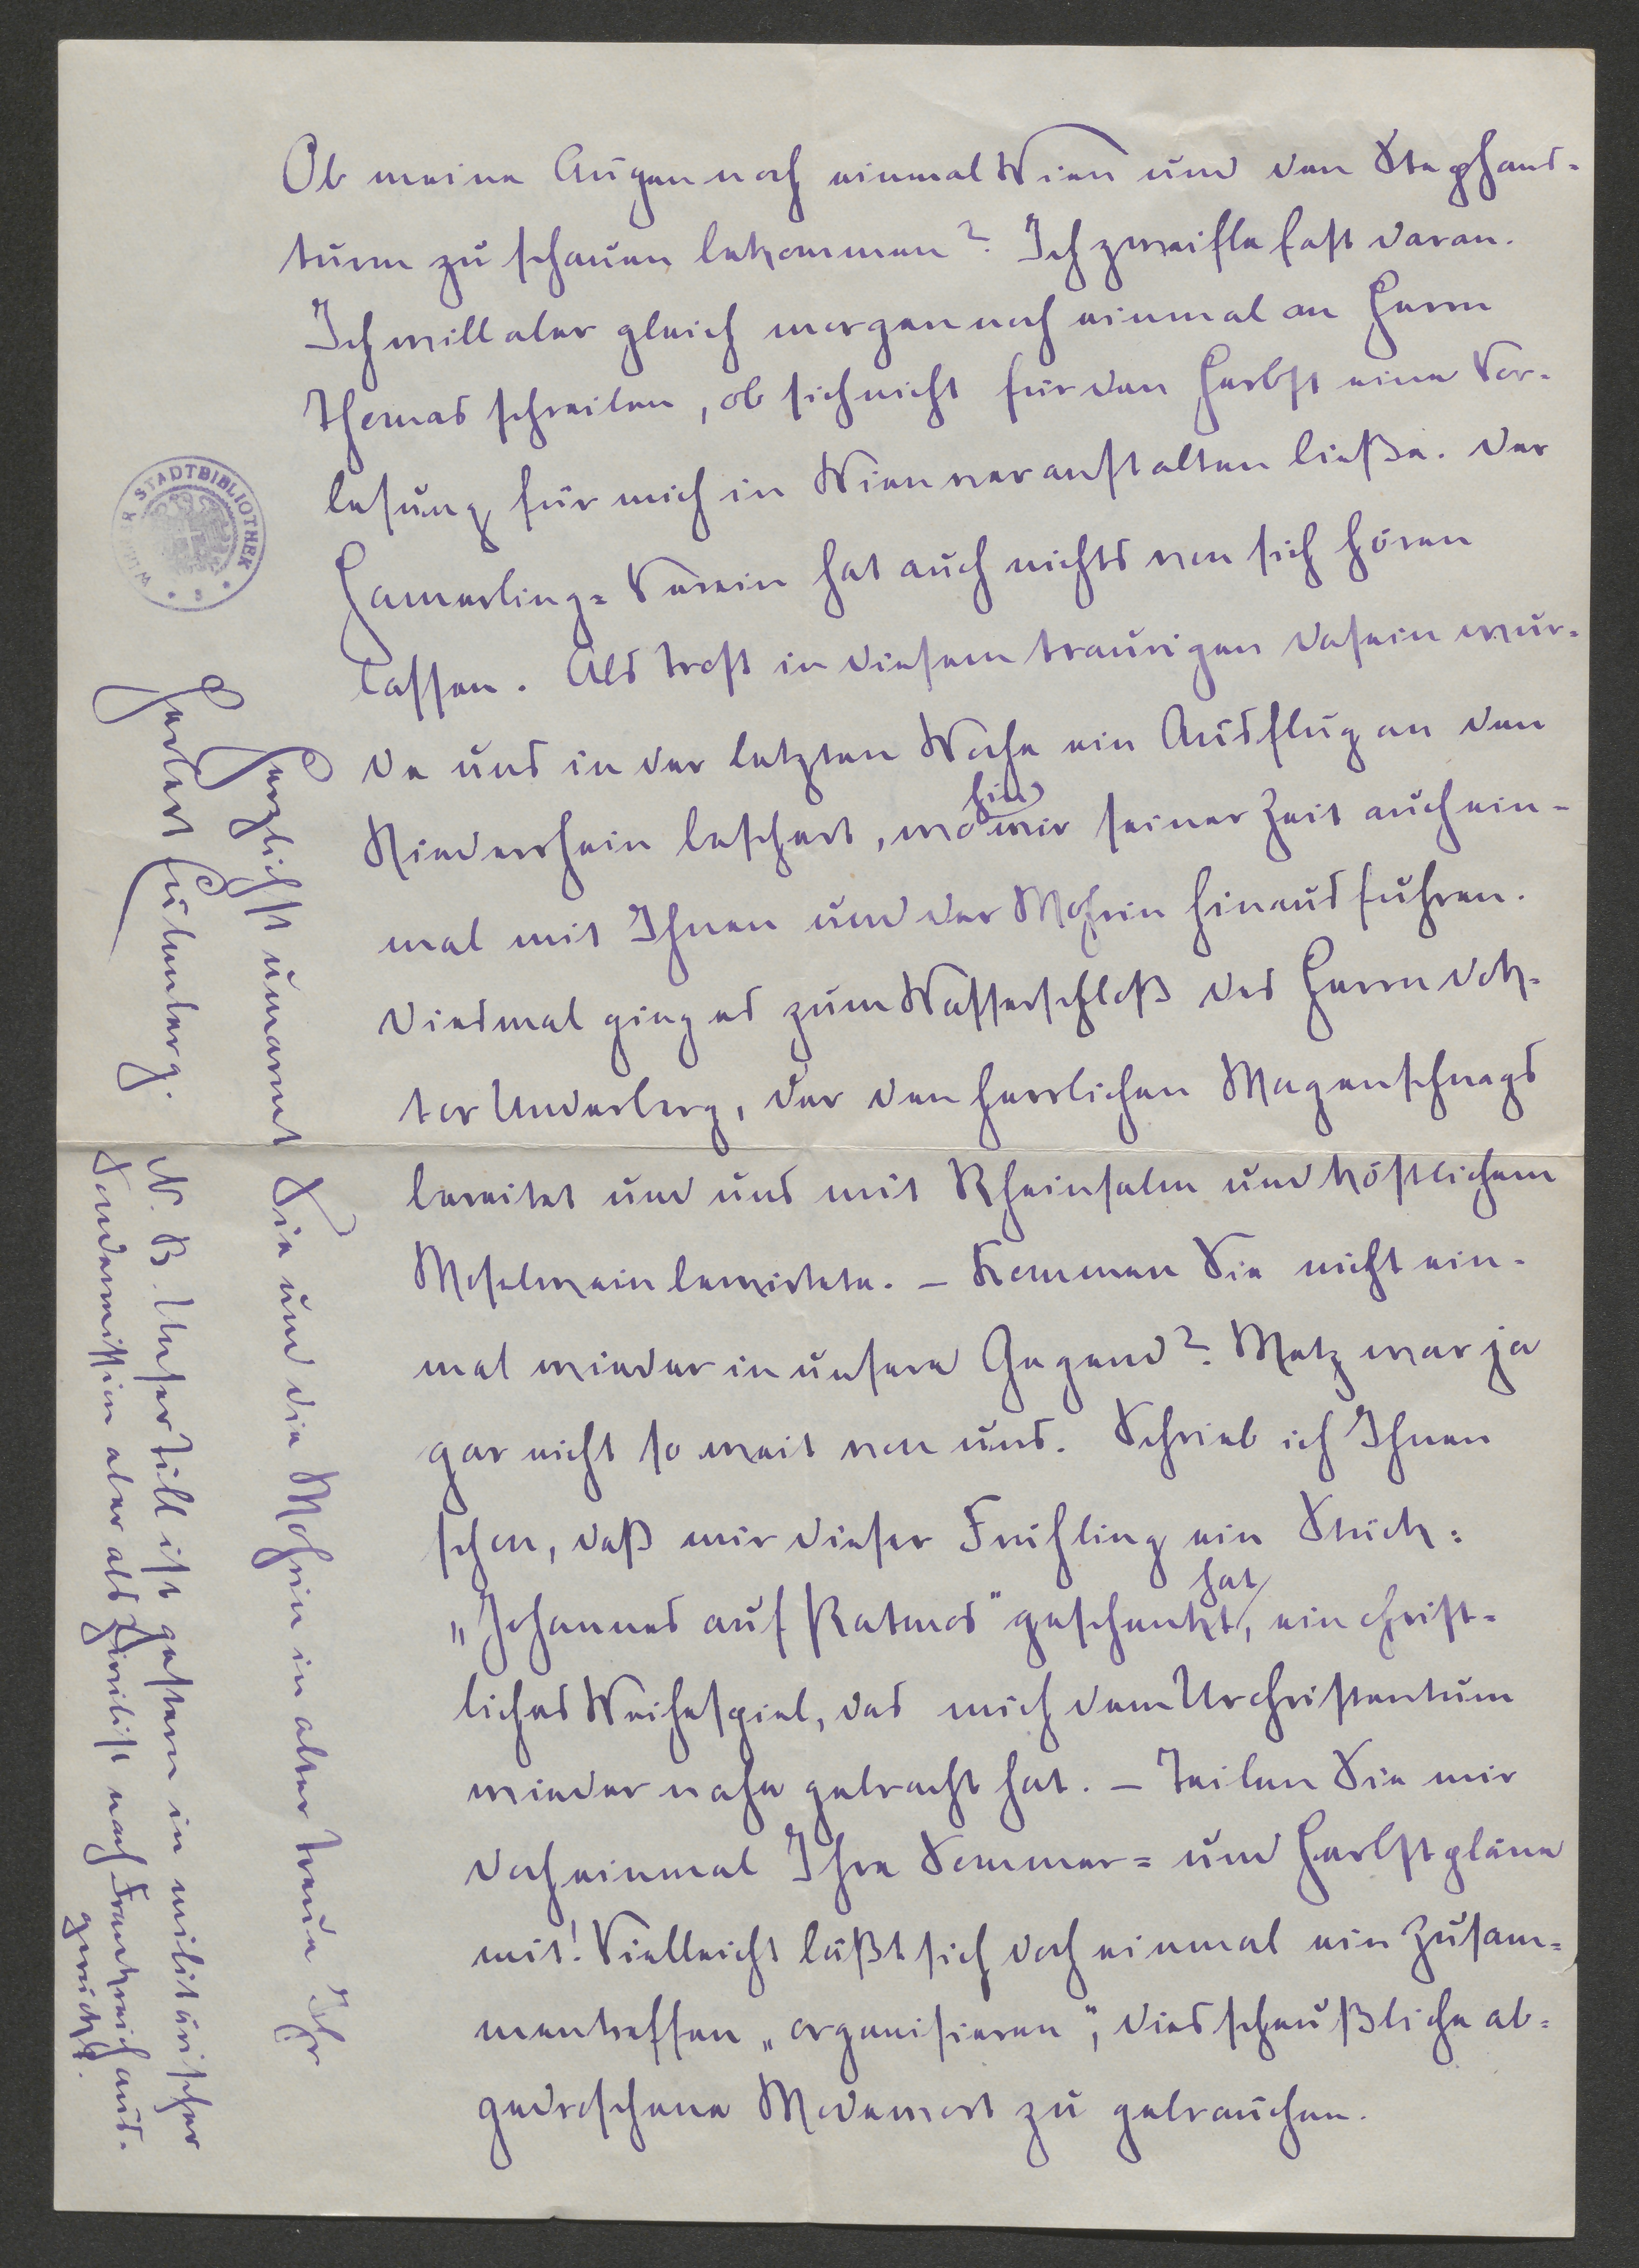 Ob meine Augen noch einmal Wien und den Stephans-
turm zu schauen bekommen? Ich zweifle fast daran.
Ich will aber gleich morgen noch einmal an Herrn
Thomas schreiben, ob sich nicht für den Herbst eine Vor-
lesung für mich in Wien veranstalten ließe. Der
Hamerling-Verein hat auch nichts von sich hören
lassen. Als Trost in diesem traurigen Dasein wur-
de uns in der letzten Woche ein Ausflug an den
Niederrhein beschert, wohin wir seiner Zeit auch ein-
mal mit Ihnen und der Mohrin hinausfuhren.
Diesmal ging es zum Wasserschloß des Herrn Dok-
tor Underberg, der den herrlichen Magenschnaps
bereitet und uns mit Rheinsalm und köstlichem
Moselwein bewirtete. – Kommen Sie nicht ein-
mal wieder in unsere Gegend? Metz war ja
gar nicht so weit von uns. Schrieb ich Ihnen
schon, daß mir dieser Frühling ein Stück:
„Johannes auf Patmos" geschenkt hat, ein christ-
liches Weihespiel, das mich dem Urchristentum
wieder nahe gebracht hat. – Teilen Sie mir
doch einmal Ihre Sommer- und Herbstpläne
mit! Vielleicht läßt sich doch einmal ein Zusam-
mentreffen „organisieren", dies scheußliche ab-
gedroschene Modewort zu gebrauchen.
Herzlichst umarmt Sie und die Mohrin in alter Treue Ihr
Herbert Eulenberg.
N. B. Unser Till ist gestern in militärischer
Sondermission aber als Zivilist nach Frankreich aus-
gerückt.
WIENER STADTBIBLIOTHEK